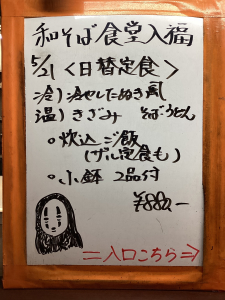 和そば食堂入福
5/21 <日替定食>
冷) 冷やしたぬき風
温) きざみ そば・うどん
○ 炊込ご飯
(ザル定食も)
○ 小鉢 2品付
¥880,-
=入口こちら⇒